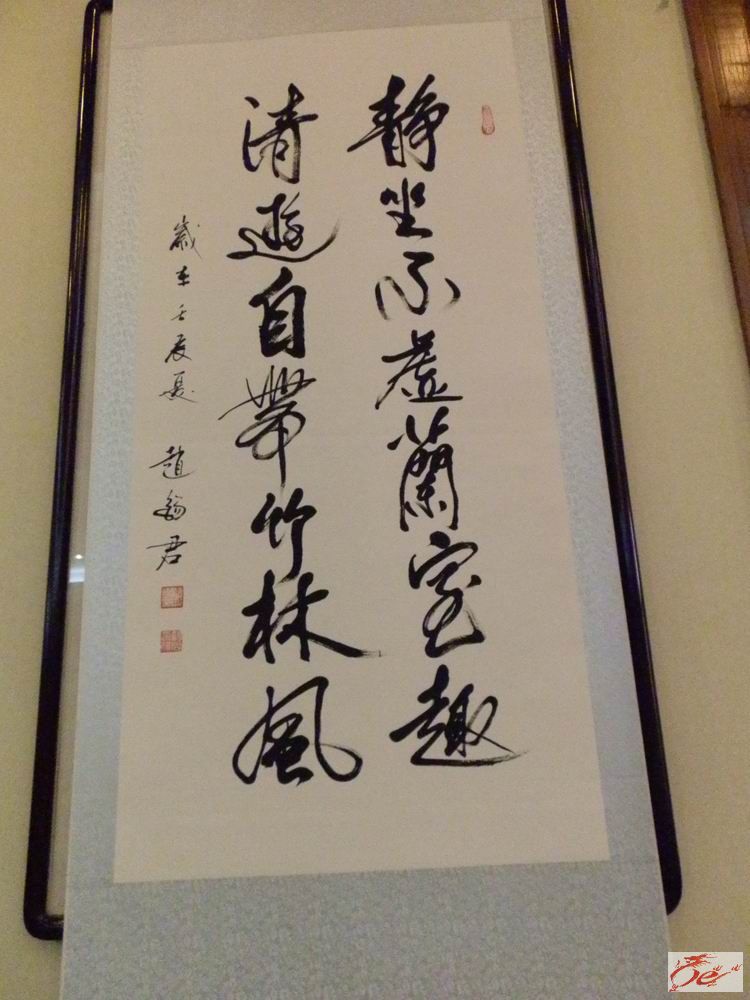 静坐不虚蘭室趣
清遊自帶竹林風
歲在壬辰夏 趙
君